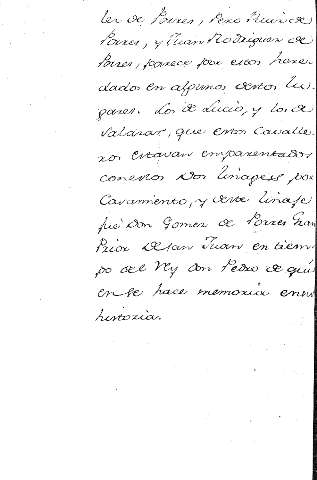 ler de Porres, Pero Ruiz de
Porres, y Juan Rodriguez de
Porres, parece por estos here
dados en algunos destos lu-
gares. Los de Lucio, y los de
Salazar, que estos Cavalle
ros estavan emparentados
con estos Dos linages por
Casamiento, y deste linaje
fué Don Gomez de Porres Gran
Prior De San Juan en tiem-
po del Rey don Pedro de qui
en se hace memoria en su
historia.